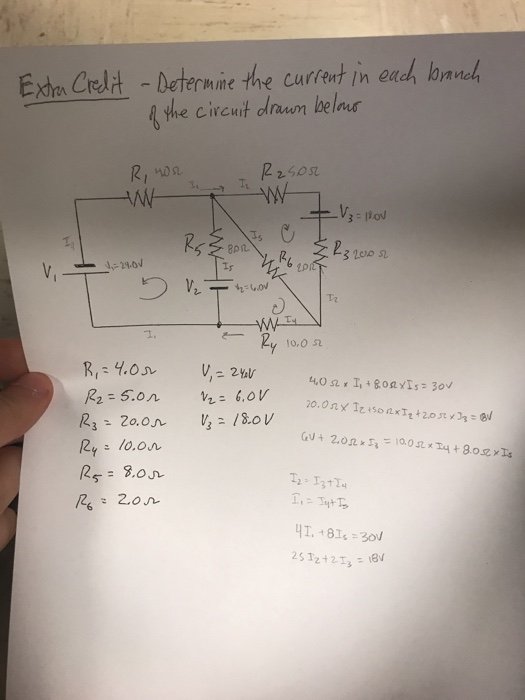 Extra Credit - Determine the current in each branch
of the circuit drawn below
R₁ 4.0Ω
R₂ 5.0Ω
I₁
I₂
V₃ = 18.0V
R₅ 8.0Ω
I₃
R₆ 2.0Ω
R₃ 20.0Ω
V₁
V₁=24.0V
I₅
V₂
V₂=6.0V
I₂
I₄
I₁
R₄ 10.0Ω
R₁ = 4.0Ω
V₁ = 24.0V
R₂ = 5.0Ω
V₂ = 6.0V
R₃ = 20.0Ω
V₃ = 18.0V
R₄ = 10.0Ω
R₅ = 8.0Ω
R₆ = 2.0Ω
4.0Ω x I₁ + 8.0Ω x I₅ = 30V
20.0Ω x I₂ + 5.0Ω x I₂ + 2.0Ω x I₃ = 18V
6V + 2.0Ω x I₃ = 10.0Ω x I₄ + 8.0Ω x I₅
I₂ = I₃ + I₄
I₁ = I₄ + I₅
4I₁ + 8I₅ = 30V
25I₂ + 2I₃ = 18V